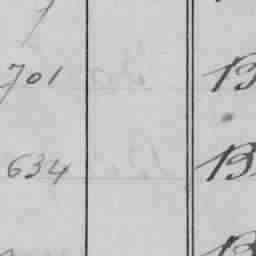 701 B
634 B
B